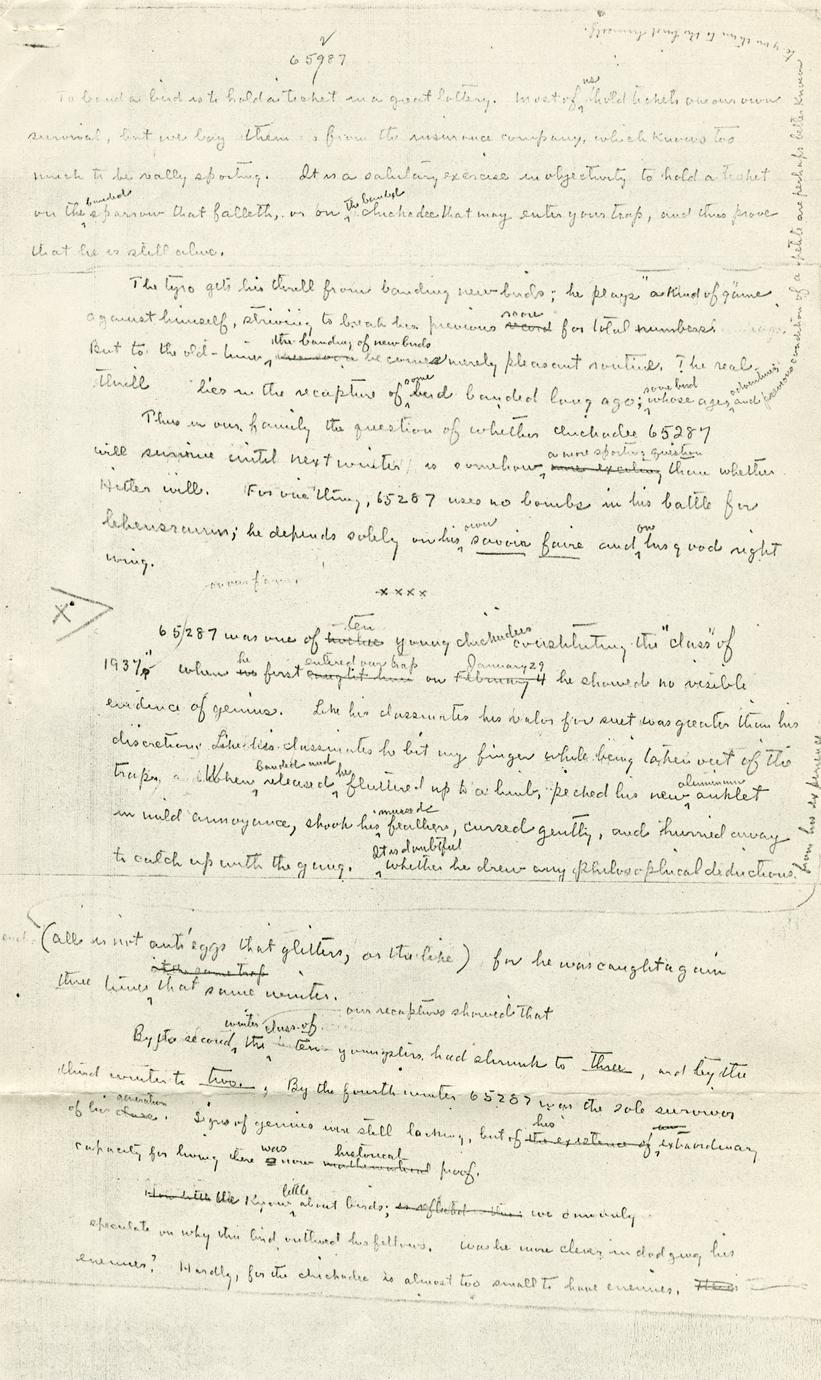 65287
To band a bird is to hold a ticket in a great lottery. Most of us hold tickets on our own
survival, but we buy them from the insurance company, which knows too
much to be really sporting. It is a salutary exercise in objectivity to hold a ticket
on the banded sparrow that falleth, or on the banded chickadee that may enter your trap, and thus prove
that he is still alive.
The tyro gets his thrill from banding new birds; he plays "a kind of game
against himself, striving to break his previous record score for total numbers
But to the old-timer the banding of new birds becomes merely pleasant routine. The real
thrill lies in the recapture of some bird banded long ago; some bird whose ages, adventures, and previous condition of appetite are perhaps better known
to you than to the bird himself.
Thus in our family the question of whether chickadee 65287
will survive until next winter is somehow more exciting a more sporting question than whether
Hitler will. For one thing, 65287 uses no bombs in his battle for
lebensraum; he depends solely on his own savoir faire and on his good right
wing.
on our farm.
xxxx
X
65287 was one of twelve ten young chickadees constituting the "class" of
1937. When he first caught him entered our trap on February 4 January 29 he showed no visible
evidence of genius. Like his classmates his valor for suet was greater than his
discretion. Like his classmates he bit my finger while being taken out of the
trap. When banded and released he fluttered up to a limb, pecked his new aluminum anklet
in mild annoyance, shook his mussed feathers, cursed gently, and hurried away
to catch up with the gang. It is doubtful whether he drew any philosophical deductions from his experience
(all is not ants' eggs that glitters, or the like) for he was caught again
three times in the same trap that same winter.
By the second winter our recaptures showed that the class of ten youngsters had shrunk to three, and by the
third winter to two. By the fourth winter 65287 was the sole survivor
of his class generation. Signs of genius were still lacking, but of the existence of his extraordinary
capacity for living there was now mathematical historical proof.
know little about birds; we can only
speculate on why this bird outlived his fellows. Was he more clever in dodging his
enemies? Hardly, for the chickadee is almost too small to have enemies.